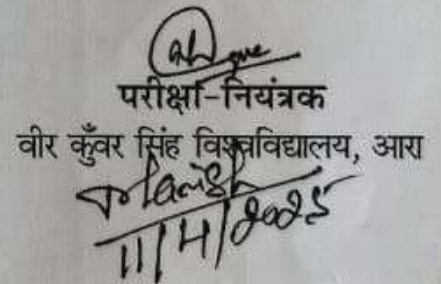 परीक्षा-नियंत्रक
वीर कुँवर सिंह विश्वविद्यालय, आरा
Manish
11/4/2025